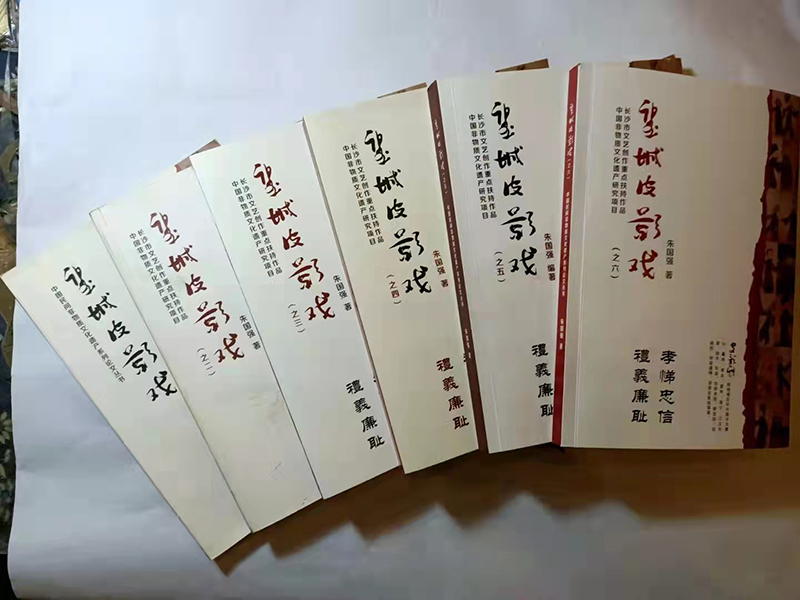 望城皮影戏
中国民间非物质文化遗产系列论文丛书
长沙市文艺创作重点扶持作品
中国非物质文化遗产研究项目
望城皮影戏
(之二)
朱国强 著
长沙市文艺创作重点扶持作品
中国非物质文化遗产研究项目
望城皮影戏
(之三)
朱国强 著
禮義廉耻
长沙市文艺创作重点扶持作品
中国非物质文化遗产研究项目
望城皮影戏
(之四)
朱国强 著
禮義廉耻
长沙市文艺创作重点扶持作品
中国非物质文化遗产研究项目
望城皮影戏
(之五)
朱国强 编著
禮義廉耻
长沙市文艺创作重点扶持作品
中国非物质文化遗产研究项目
望城皮影戏
(之六)
朱国强 著
孝悌忠信
禮義廉耻